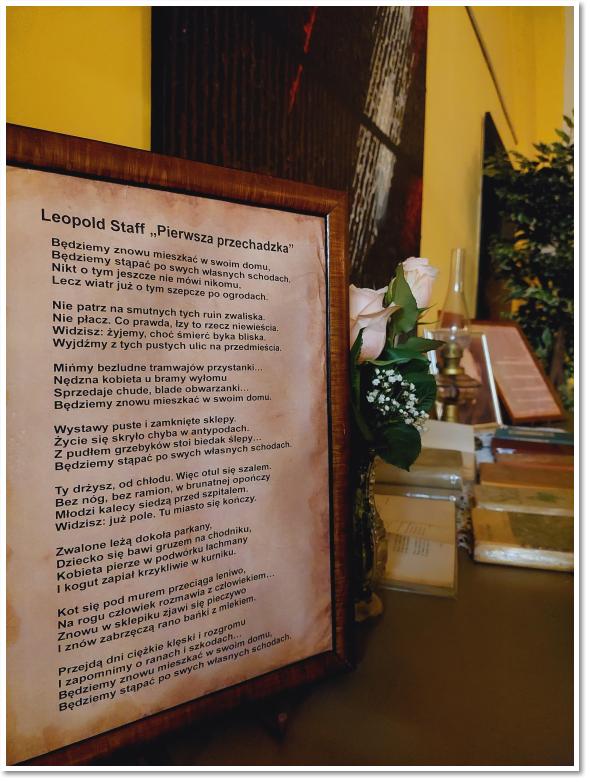 Leopold Staff „Pierwsza przechadzka”
Będziemy znowu mieszkać w swoim domu,
Będziemy stąpać po swych własnych schodach.
Nikt o tym jeszcze nie mówi nikomu,
Lecz wiatr już o tym szepcze po ogrodach.
Nie patrz na smutnych tych ruin zwaliska.
Nie płacz. Co prawda, łzy to rzecz niewieścia.
Widzisz: żyjemy, choć śmierć byka bliska.
Wyjdźmy z tych pustych ulic na przedmieścia.
Mińmy bezludne tramwajów przystanki...
Nędzna kobieta u bramy wyłomu
Sprzedaje chude, blade obwarzanki...
Będziemy znowu mieszkać w swoim domu.
Wystawy puste i zamknięte sklepy.
Życie się skryło chyba w antypodach.
Z pudłem grzebyków stoi biedak ślepy...
Będziemy stąpać po swych własnych schodach.
Ty drżysz, od chłodu. Więc otul się szalem.
Bez nóg, bez ramion, w brunatnej opończy
Młodzi kalecy siedzą przed szpitalem.
Widzisz: już pole. Tu miasto się kończy.
Zwalone leżą dokoła parkany,
Dziecko się bawi gruzem na chodniku,
Kobieta pierze w podwórku łachmany
I kogut zapiał krzykliwie w kurniku.
Kot się pod murem przeciąga leniwo,
Na rogu człowiek rozmawia z człowiekiem...
Znowu w sklepiku zjawi się pieczywo
I znów zabrzęczą rano bańki z mlekiem.
Przejdą dni ciężkie klęski i rozgromu
I zapomnimy o ranach i szkodach...
Będziemy znowu mieszkać w swoim domu,
Będziemy stąpać po swych własnych schodach.